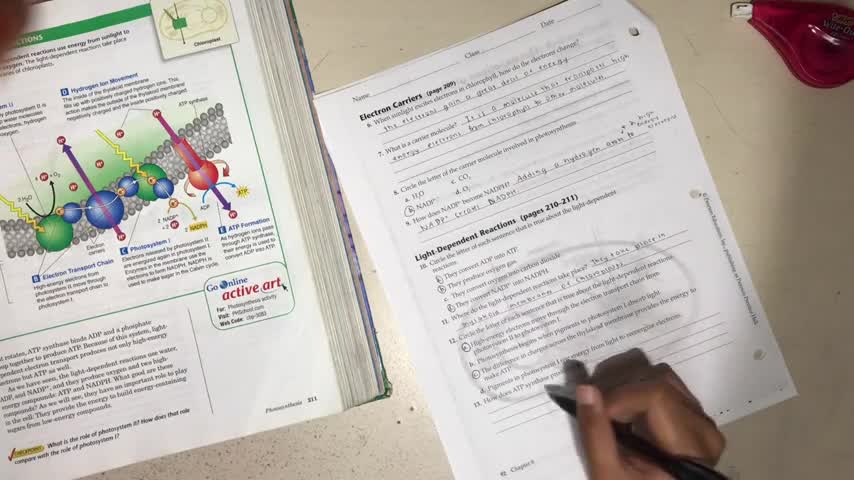 CTIONS
pendent reactions use energy from sunlight to
oxygen. The light-dependent reactions take place
anes of chloroplasts.
Chloroplast
D Hydrogen Ion Movement
The inside of the thylakoid membrane
fills up with positively charged hydrogen ions. This
action makes the outside of the thylakoid membrane
negatively charged and the inside positively charged
ATP synthase
H+
+ O2
2 H2O
ADP
ATP
2 NADP+
2 NADPH
H+
Electron
carriers
B Electron Transport Chain
High-energy electrons from
photosystem II move through
the electron transport chain to
photosystem I.
C Photosystem I
Electrons released by photosystem II
are energized again in photosystem I.
Enzymes in the membrane use the
electrons to form NADPH. NADPH is
used to make sugar in the Calvin cycle.
E ATP Formation
As hydrogen ions pass
through ATP synthase,
their energy is used to
convert ADP into ATP.
Go Online
active art
For: Photosynthesis activity
Visit: PHSchool.com
Web Code: cbp-3083
t rotates, ATP synthase binds ADP and a phosphate
up together to produce ATP. Because of this system, light-
pendent electron transport produces not only high-energy
ectrons but ATP as well.
As we have seen, the light-dependent reactions use water,
ADP, and NADP+, and they produce oxygen and two high-
energy compounds: ATP and NADPH. What good are these
compounds? As we will see, they have an important role to play
in the cell: They provide the energy to build energy-containing
sugars from low-energy compounds.
CHECKPOINT What is the role of photosystem II? How does that role
compare with the role of photosystem I?
Photosynthesis 211
Name Class Date
Electron Carriers (page 209)
6. When sunlight excites electrons in chlorophyll, how do the electrons change?
the electrons gain a great deal of energy
7. What is a carrier molecule? It is a molecule that transports high
energy electrons from chlorophyll to other molecules
8. Circle the letter of the carrier molecule involved in photosynthesis.
a. H2O c. CO2
b. NADP+ d. O2
9. How does NADP+ become NADPH? Adding a hydrogen atom to
NADP+ creat NADPH
high
energy
electrons
Light-Dependent Reactions (pages 210–211)
10. Circle the letter of each sentence that is true about the light-dependent
reactions.
a. They convert ADP into ATP.
b. They produce oxygen gas.
c. They convert oxygen into carbon dioxide.
d. They convert NADP+ into NADPH.
11. Where do the light-dependent reactions take place? This take place in
membrane of
12. Circle the letter of each sentence that is true about the light-dependent reactions.
a. High-energy electrons move through the electron transport chain from
photosystem II to photosystem I.
b. Photosynthesis begins when pigments in photosystem I absorb light.
c. The difference in charges across the thylakoid membrane provides the energy to
make ATP.
d. Pigments in photosystem I use energy from light to reenergize electrons.
13. How does ATP synthase
92 Chapter 8
© Pearson Education, Inc., publishing as Pearson Prentice Hall.